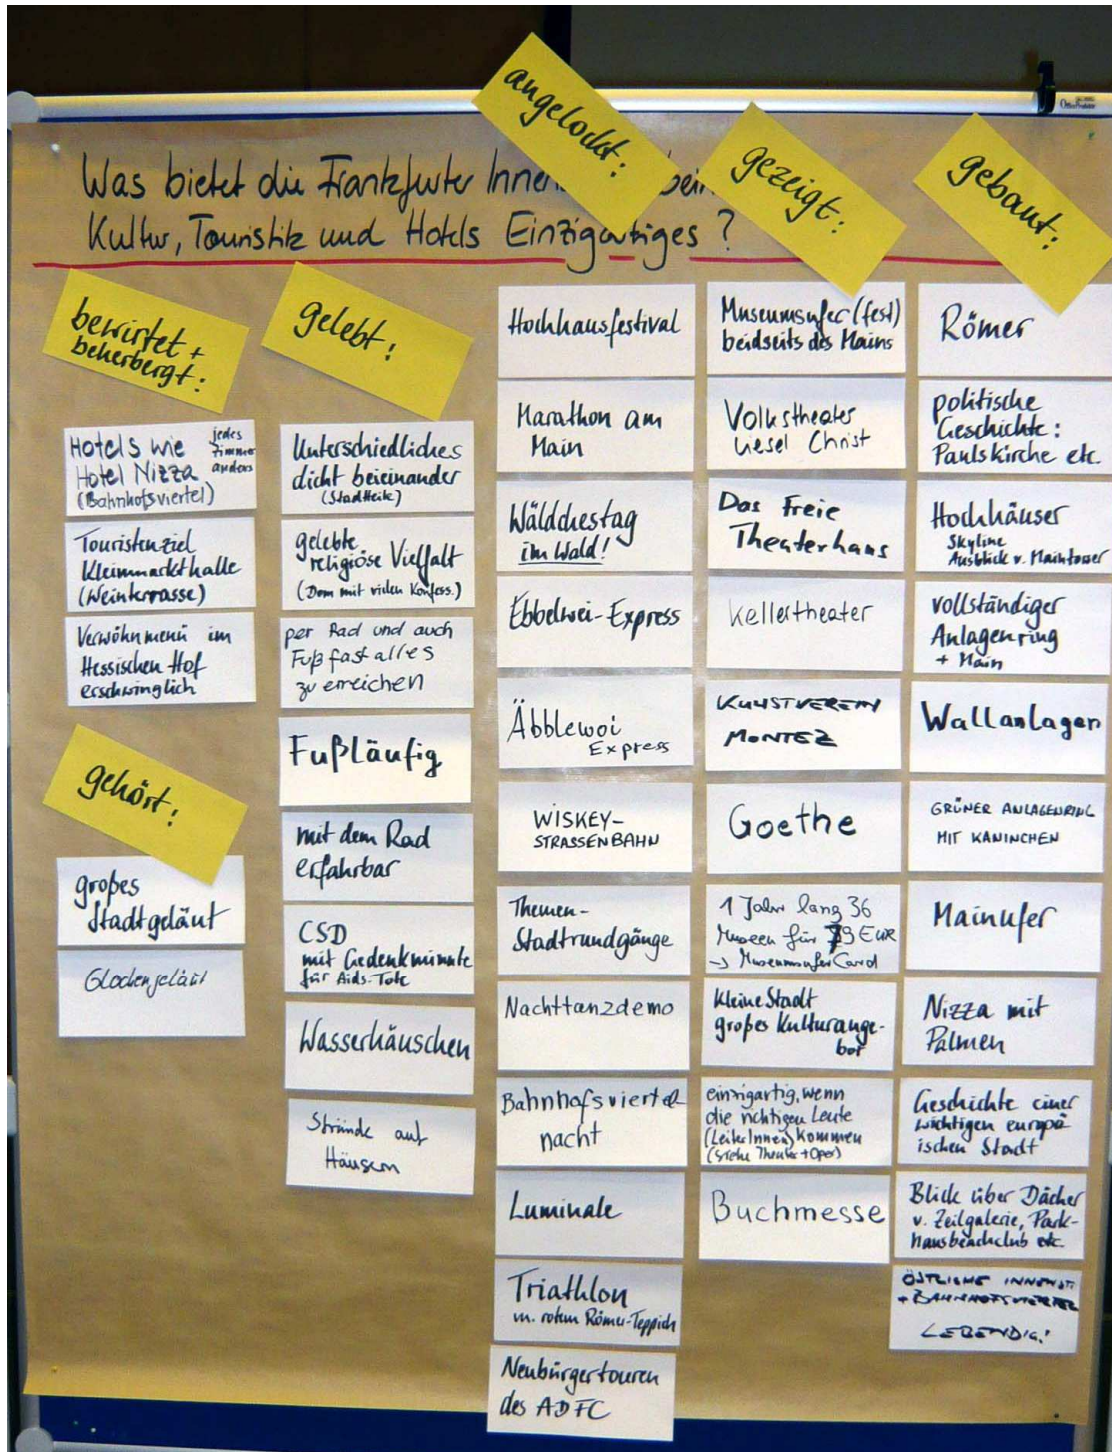 Was bietet die Frankfurter Innen bei
Kultur, Touristik und Hotels Einzigartiges ?
bewirtet +
beherbergt:
Hotels wie jedes
Hotel Nizza Zimmer
(Bahnhofsviertel) anders
Touristenziel
Kleinmarkthalle
(Weinterrasse)
Verwöhnmenü im
Hessischen Hof
erschwinglich
gehört:
großes
Stadtgeläut
Glockengeläut
gelebt:
Unterschiedliches
dicht beieinander
(Stadtteile)
gelebte
religiöse Vielfalt
(Dom mit vielen Konfess.)
per Rad und auch
Fuß fast alles
zu erreichen
Fußläufig
mit dem Rad
erfahrbar
CSD
mit Gedenkminute
für Aids-Tote
Wasserhäuschen
Strände auf
Häusern
angelockt:
Hochhausfestival
Marathon am
Main
Wäldchestag
im Wald!
Ebbelwei-Express
Äbblewoi
Express
WISKEY-
STRASSENBAHN
Themen-
Stadtrundgänge
Nachttanzdemo
Bahnhofsviertel
nacht
Luminale
Triathlon
m. rotem Römer-Teppich
Neubürgertouren
des ADFC
gezeigt:
Museumsufer(fest)
beidseits des Mains
Volkstheater
Liesel Christ
Das Freie
Theaterhaus
Kellertheater
KUNSTVEREIN
MONTEZ
Goethe
1 Jahr lang 36
Museen für 79 EUR
-> MuseumsuferCard
kleine Stadt
großes Kulturange-
bot
einzigartig, wenn
die richtigen Leute
(LeiterInnen) kommen
(siehe Theater + Oper)
Buchmesse
gebaut:
Römer
politische
Geschichte:
Paulskirche etc.
Hochhäuser
Skyline
Ausblick v. Maintower
vollständiger
Anlagenring
+ Main
Wallanlagen
GRÜNER ANLAGENRING
MIT KANINCHEN
Mainufer
Nizza mit
Palmen
Geschichte einer
wichtigen europä
ischen Stadt
Blick über Dächer
v. Zeilgalerie, Park-
hausbeachclub etc.
ÖSTLICHE INNENST.
+ BAHNHOFSVIERTEL
LEBENDIG!